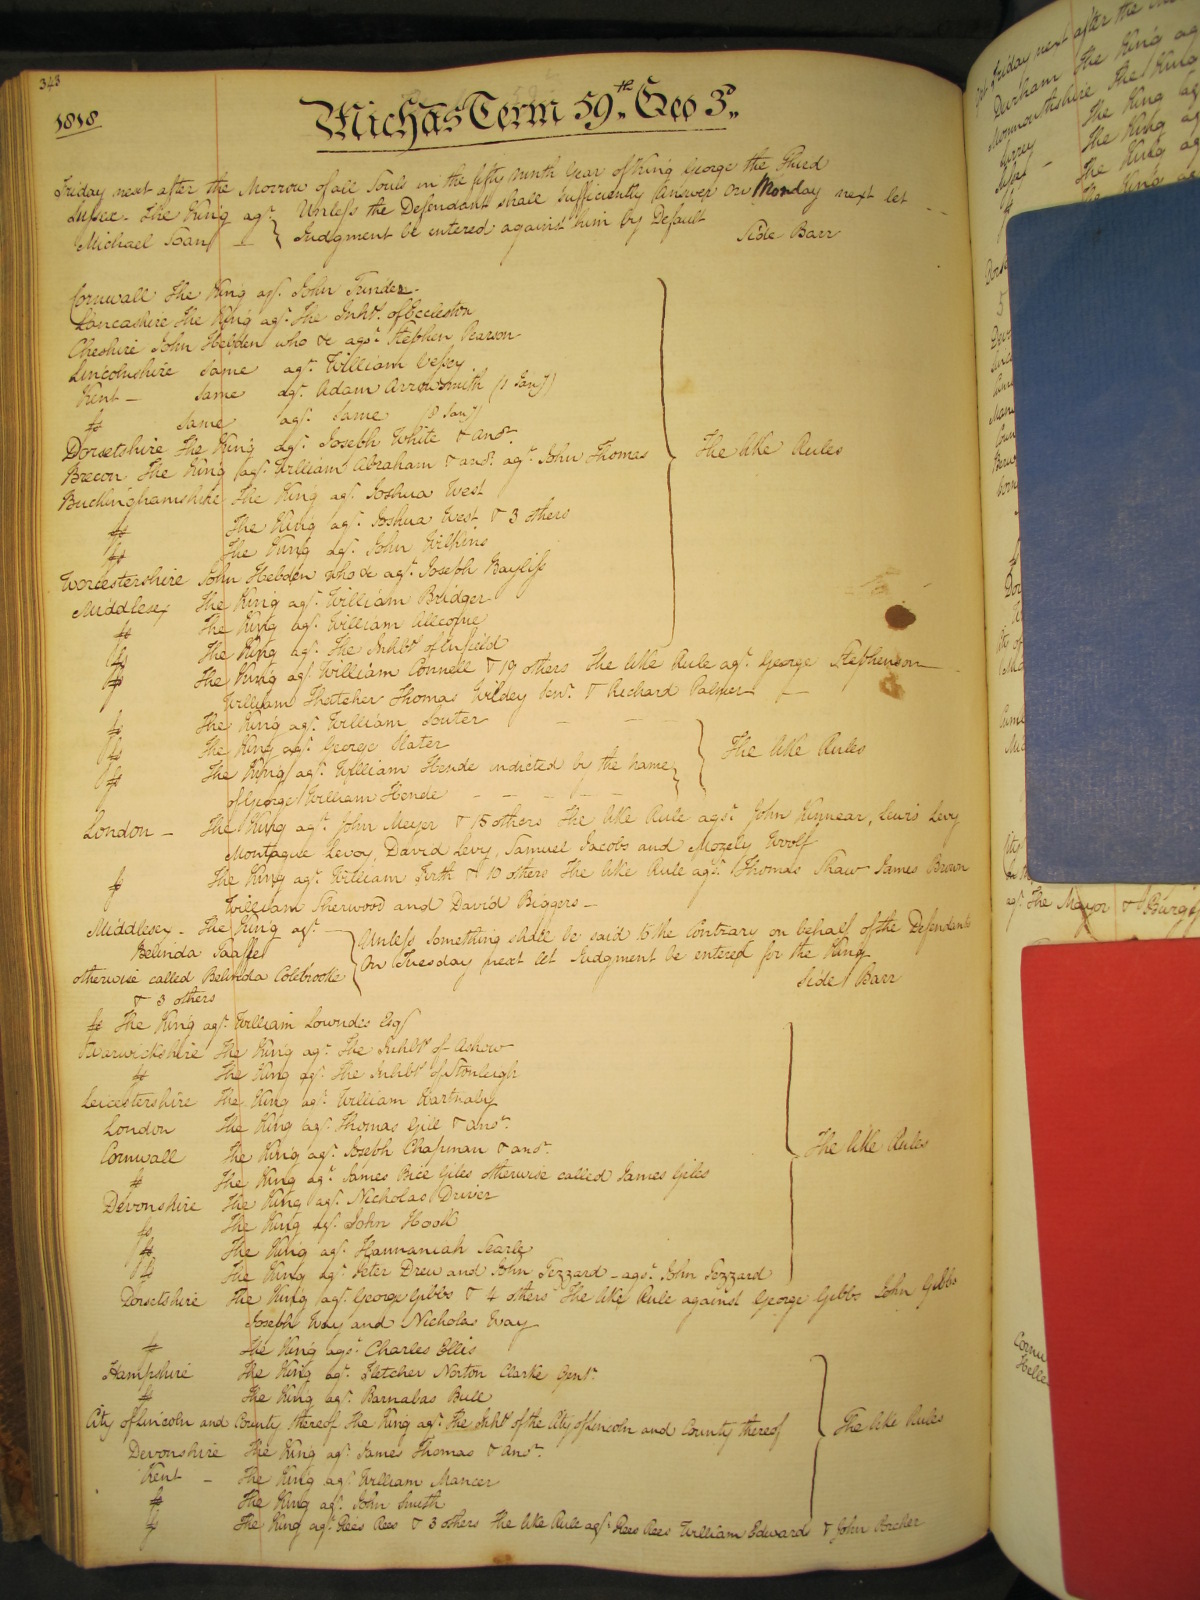 343
1818
Michās Term 59th Geo 3d
Friday next after the Morrow of all Souls in the fifty ninth Year of King George the Third
The King agt. Unless the Defendant shall sufficiently Answer on Monday next let
Michael Judgment be entered against him by Default
Side Barr
Cornwall The King agt. John
Lancashire The King agt. The Inhbts. of Eccleston
Cheshire John Hebden who &c agst. Stephen Pearson
Lincolnshire Same agt. William Vessey
Kent – Same agt. Adam Arrowsmith (1 Jany)
Same agt. Same (8 Jany)
Dorsetshire The King agt. Joseph White & anor.
Brecon The King agt. William Abraham & anor. agt. John Thomas
The like Rules
Buckinghamshire The King agt. Joshua West
The King agt. Joshua West & 3 others
The King agt. John Wilkins
Worcestershire John Hebden who &c agt. Joseph Bayliss
Middlesex The King agt. William Bridger
The King agt. William
The King agt. The Inhbts of Enfield
The King agt. William Connell & 19 others The like Rule agt. George Stephenson
William Thatcher Thomas Wildey Senr. & Richard Palmer
The King agt. William Souter
The King agt. George Slater
The like Rules
The King agt. William Hende indicted by the name
of George William Hende
London – The King agt. John Meyer & 15 others The like Rule agst. John Kinnear, Lewis Levy
Montague Levoy, David Levy, Samuel Jacobs and Mozely Woolf
The King agt. William Firth & 10 others The like Rule agt. Thomas Shaw James Brown
William Sherwood and David Biggers –
Middlesex – The King agt. Unless something shall be said to the Contrary on behalf of the Defendants
Belinda on Tuesday next let Judgment be entered for the King
otherwise called Belinda Colebrooke
Side Barr
& 3 others
The King agt. William Lowndes Esqr
Warwickshire The King agt. The Inhbts of Ashow
The King agt. The Inhbts of Stonleigh
Leicestershire The King agt. William Hartnaby
London The King agt. Thomas Gill & anor.
Cornwall The King agt. Joseph Chapman & anor.
The like Rules
The King agt. James Bice Giles otherwise called James Giles
Devonshire The King agt. Nicholas Driver
The King agt. John Hook
The King agt. Hannaniah Searle
The King agt. Peter Drew and John Tezzard – agst. John Tezzard
Dorsetshire The King agt. George Gibbs & 4 others The like Rule against George Gibbs John Gibbs
Joseph Way and Nicholas Way
The King agst. Charles Ellis
Hampshire The King agt. Fletcher Norton Clarke Gentn.
The King agt. Barnabas Bull
City of Lincoln and County thereof The King agt. The Inhbts of the City of Lincoln and County thereof
The like Rules
Devonshire The King agt. James Thomas & anor.
Kent – The King agt. William Mancer
The King agt. John Smith
The King agt. Rees Rees & 3 others The like Rule agt. Rees Rees William Edward & John
Friday next after the
Durham The King ag
Monmouthshire The King
Surrey The King ag
The King ag
The King ag
agt. The Mayor & Burge